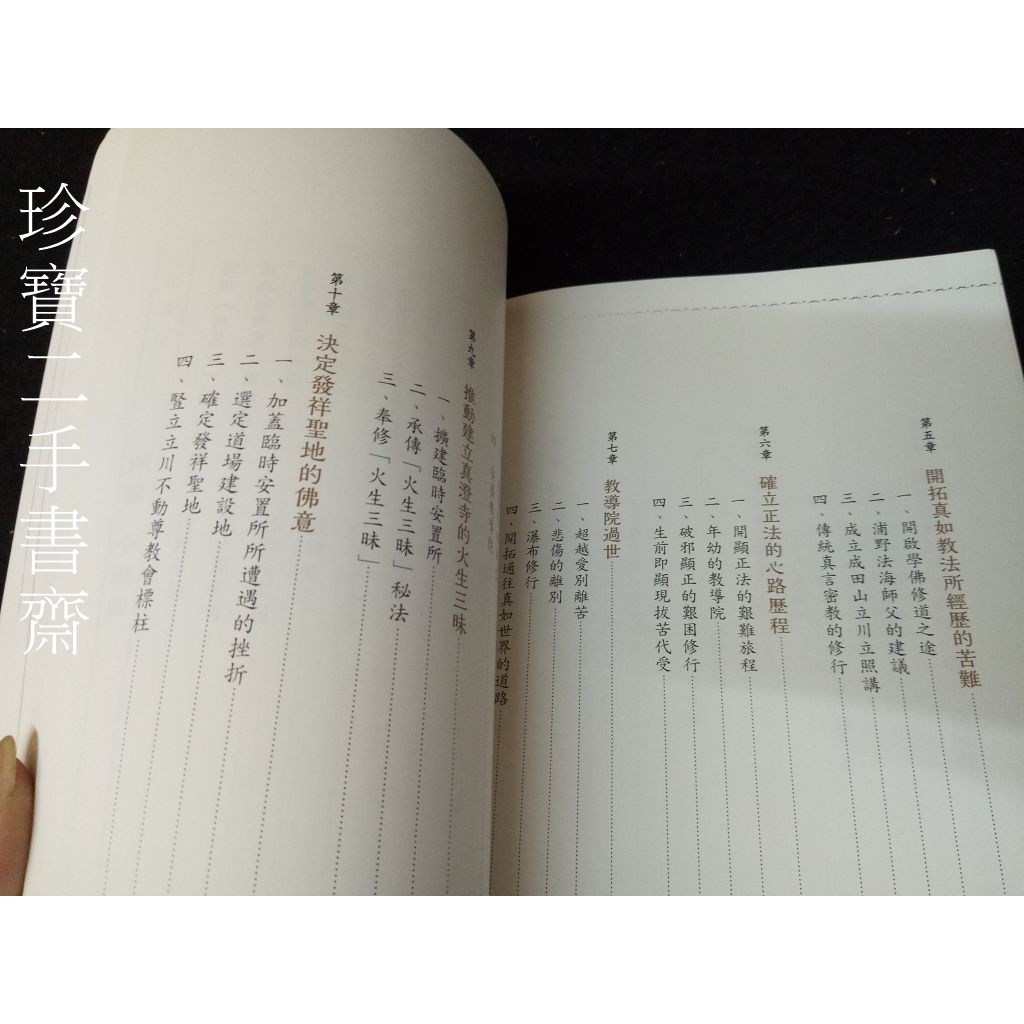 珍寶二手書齋
第五章 開拓真如教法所經歷的苦難
一、開啟學佛修道之途
二、浦野法海師父的建議
三、成立成田山立川立照講
四、傳統真言密教的修行
第六章 確立正法的心路歷程
一、開顯正法的艱難旅程
二、年幼的教導院
三、破邪顯正的艱困修行
四、生前即顯現拔苦代受
第七章 教導院過世
一、超越愛別離苦
二、悲傷的離別
三、瀑布修行
四、開拓通往真如世界的道路
第九章 推動建立真澄寺的火生三昧
一、擴建臨時安置所
二、承傳「火生三昧」秘法
三、奉修「火生三昧」
第十章 決定發祥聖地的佛意
一、加蓋臨時安置所所遭遇的挫折
二、選定道場建設地
三、確定發祥聖地
四、豎立立川不動尊教會標柱